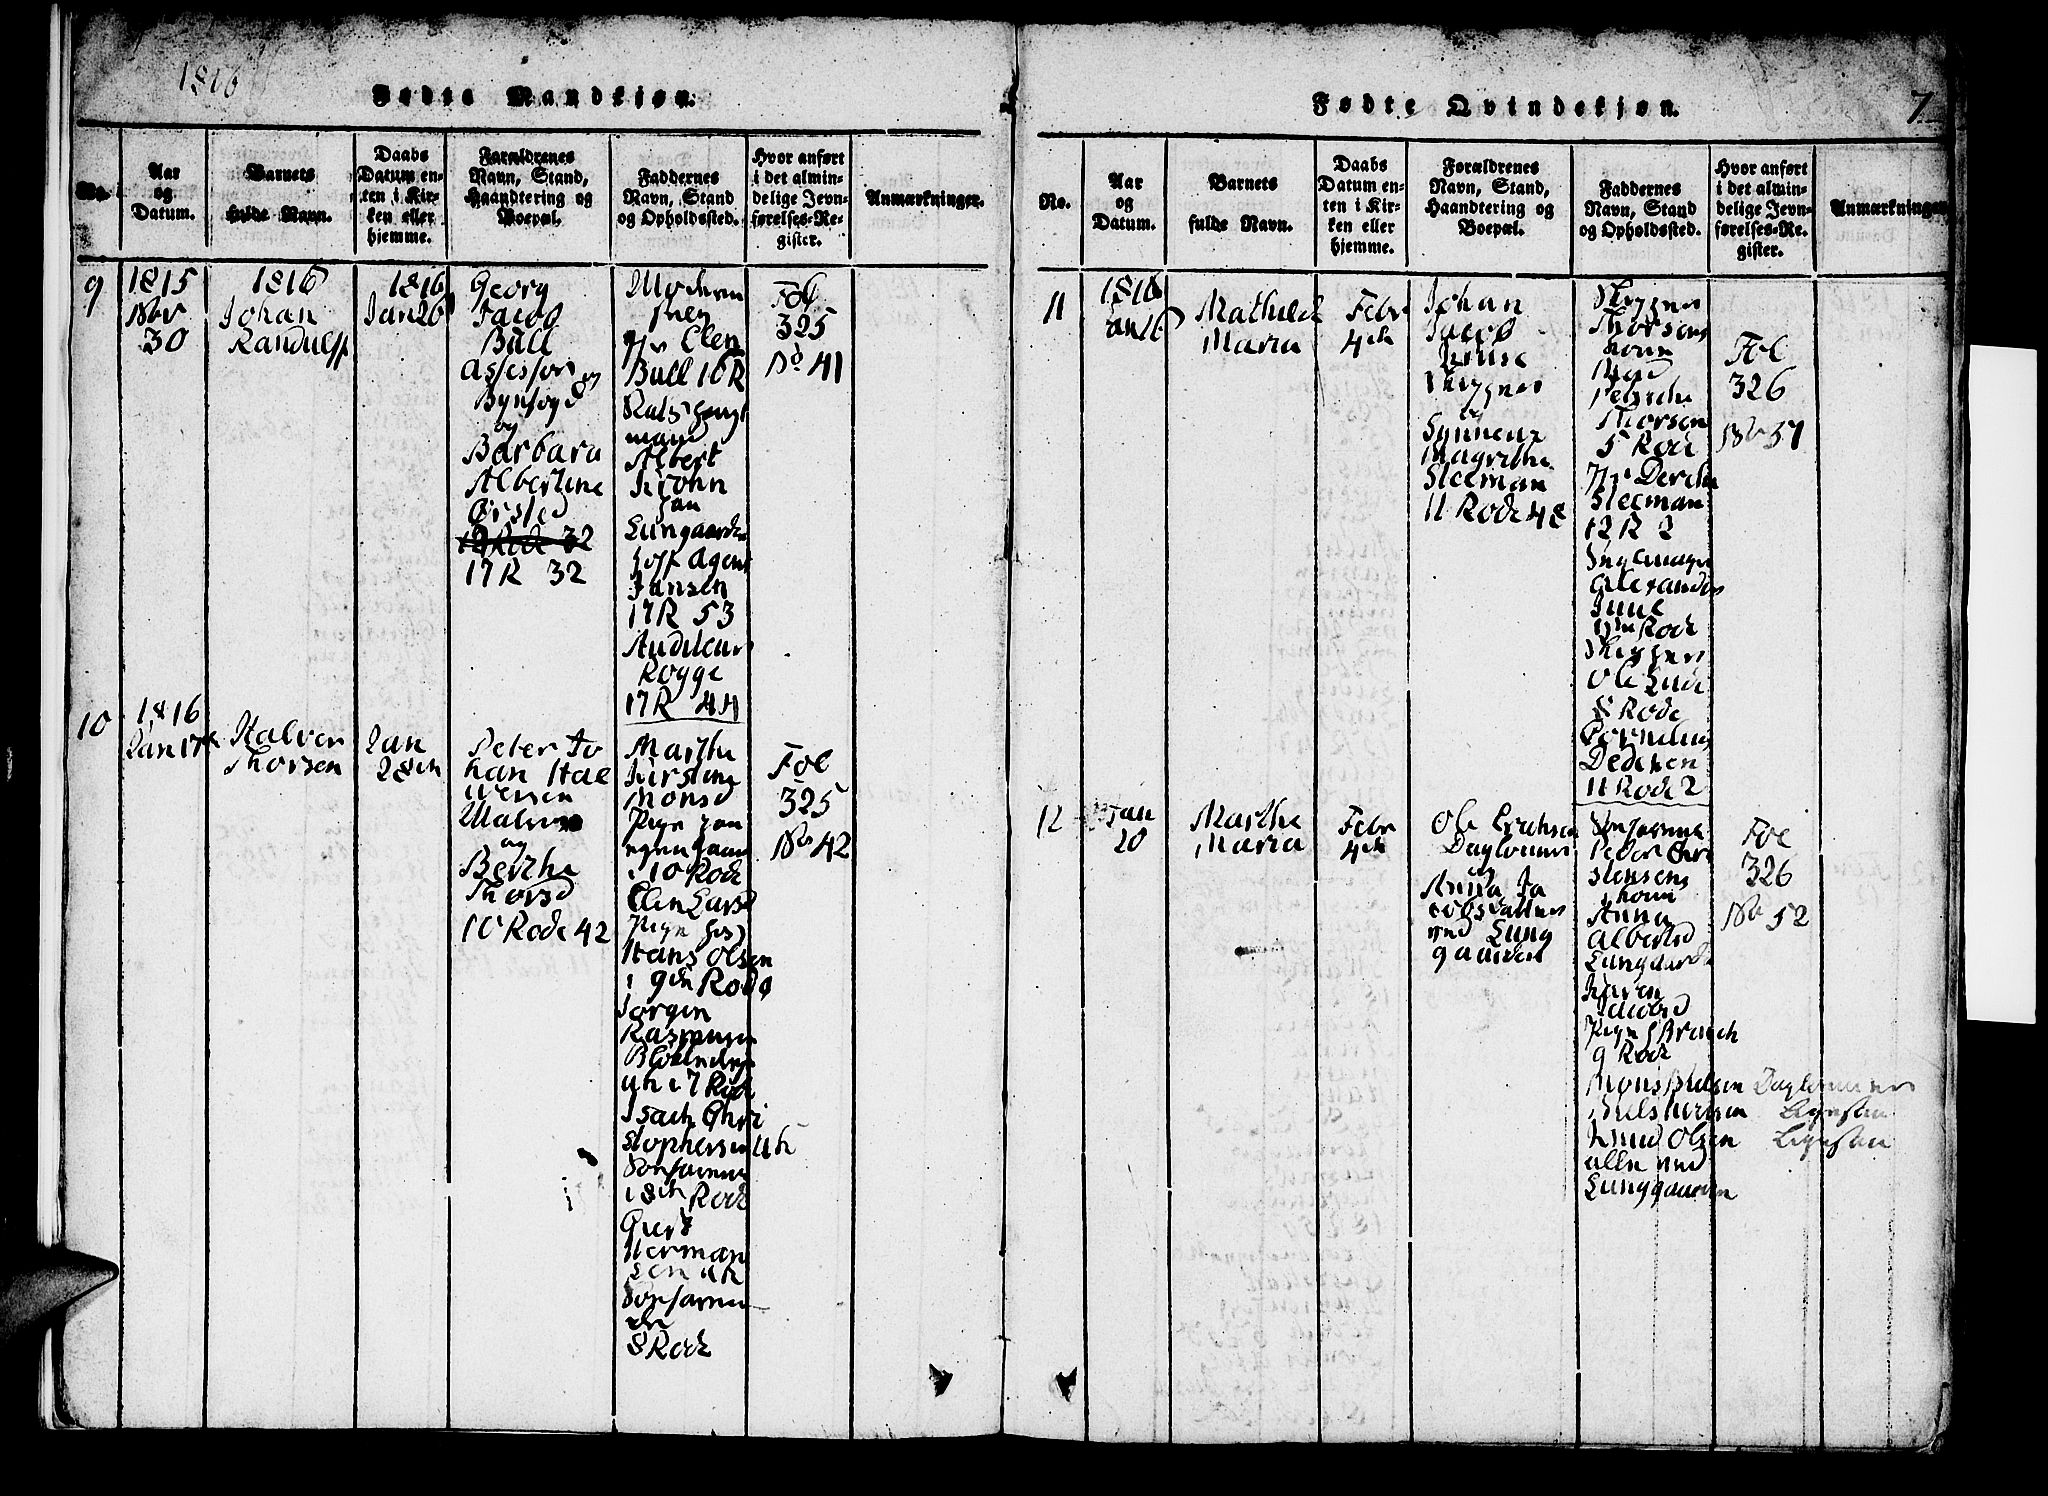 1816
Fødte Mandkjøn.
No.
Aar
og
Datum.
Barnets
fulde Navn.
Daabs
Datum en-
ten i Kir-
ken eller
hjemme.
Forældrenes
Navn, Stand,
Haandtering og
Boepæl.
Faddernes
Navn, Stand
og Opholdssted.
Hvor anført
i det almin-
delige Jevn-
førelses-Re-
gister.
Anmærkninger.
9
1815
Nov
30
1816
Johan
Randulff
1816
Jan 26
Georg
Jacob
Bull
Assessor og
Byfogd
og
Barbara
Albertine
Ørsted
12 Rode 32
17 R 32
Moderen
Bull 16 R
Albert
Krohn
paa
Lungaarden
Hoff Agent
Jansen
17 R 53
Auditeur
Rogge
17 R 44
Fol
325
No 41
10
1816
Jan 17
Halver
Thorsen
Jan
28de
Peter Jo
han Hal
versen
og
Berthe
Thorsd
10 Rode 42
Marthe
Kirstine
Monsd
Pige paa
10 Rode
Elen Larsd
Pige hos
Hans Olsen
i 9de Rode
Jørgen
Rasmusen
uh i 7 Rode
Isach Chri
stophersen uh
i 8de Rode
Giert
Herman
sen uh
8 Rode
Fol
325
No 42
7
Fødte Qvindekjøn.
No.
Aar
og
Datum.
Barnets
fulde Navn.
Daabs
Datum en-
ten i Kir-
ken eller
hjemme.
Forældrenes
Navn, Stand,
Haandtering og
Boepæl.
Faddernes
Navn, Stand
og Opholdssted.
Hvor anført
i det almin-
delige Jevn-
førelses-Re-
gister.
Anmærkninger
11
1816
Jan 16
Mathilde
Maria
Febr
4de
Johan
Jacob
Skipper
og
Synneve
Magrethe
Sleeman
11 Rode 48
Skipper
Thorsens
kone
Thorsen
5 Rode
Sleeman
12 R 2
Juul
Rode
Skipper
Ole
8 Rode
Cornelius
Dedeken
11 Rode 2
Fol
326
No 51
12
Jan
20
Marthe
Maria
Febr
4de
Ole Erichsen
Daglønner
og
Anna Ja
cobsdatter
ved Lung
gaarden
Peder Chri
stensens
kone
Anna
Albertsd
Lungaarden
Karen
Jacobsd
Pige
9 Rode
Mons Nielsen Daglønner
Niels Iversen Ligesaa
Knud Olsen Ligesaa
alle ved
Lunggaarden
Fol
326
No 52